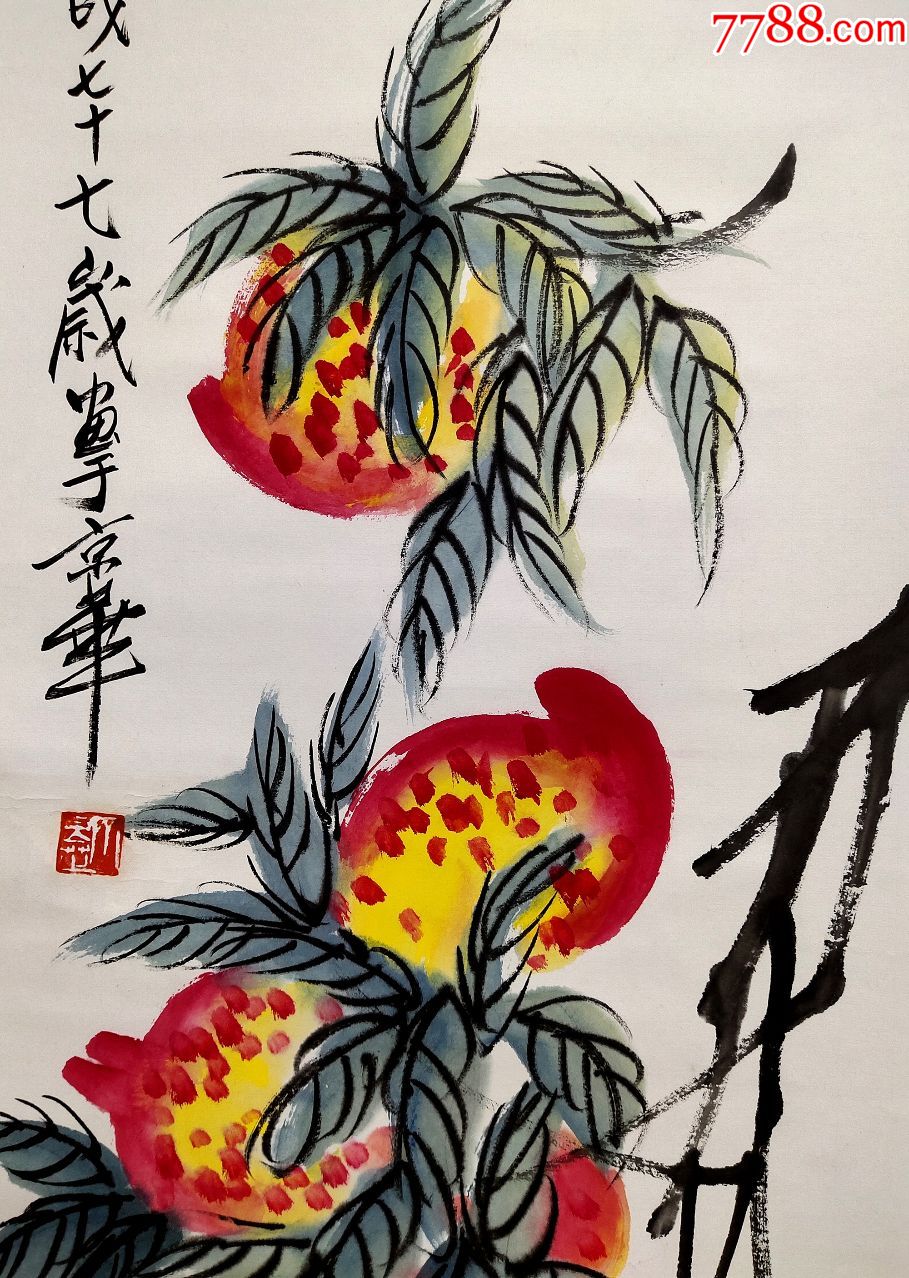 7788.com
成七十七歲畫于京華